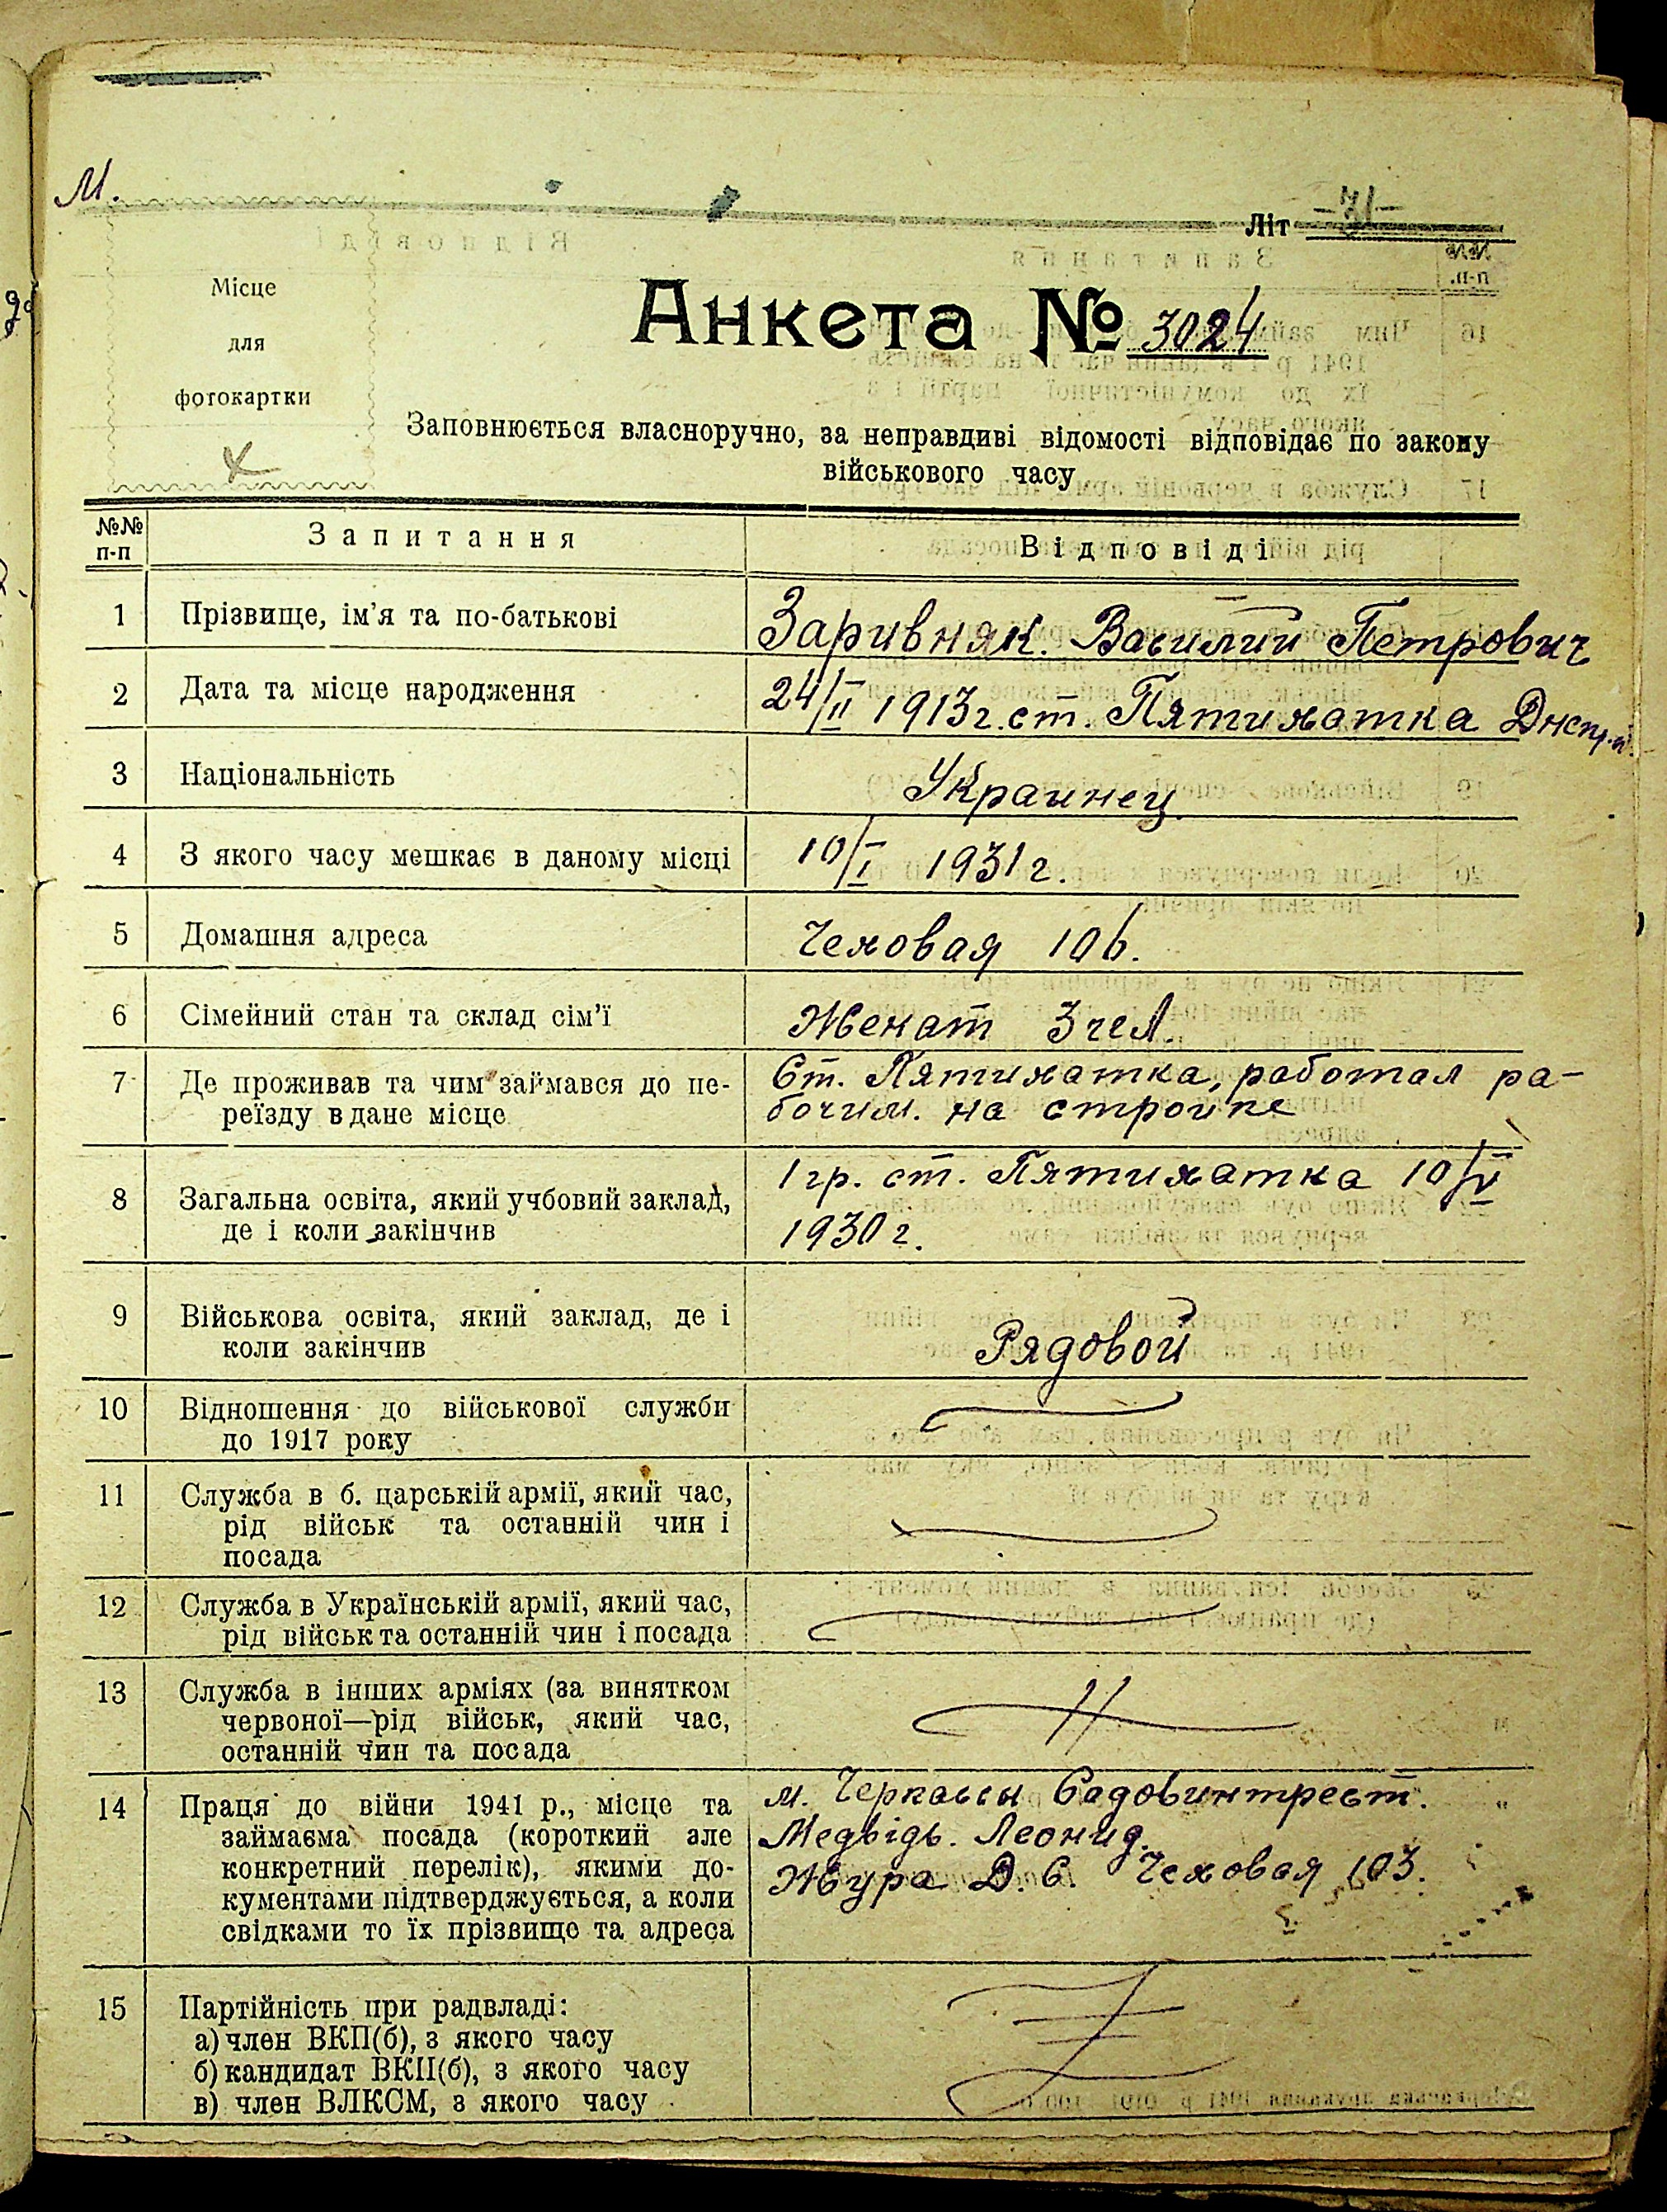 М.
Літ -31-
Місце
для
фотокартки
Анкета № 3024
Заповнюється власноручно, за неправдиві відомості відповідає по закону
військового часу
№№ п-п Запитання Відповіді
1 Прізвище, ім'я та по-батькові Заривняк. Василий Петрович
2 Дата та місце народження 24/II 1913г. ст. Пятихатка Днепр.п.
3 Національність Украинец
4 З якого часу мешкає в даному місці 10/I 1931г.
5 Домашня адреса Чеховая 106.
6 Сімейний стан та склад сім'ї Женат 3 чел.
7 Де проживав та чим займався до пе- Ст. Пятихатка, работал ра-
реїзду в дане місце бочим. на стройке
8 Загальна освіта, який учбовий заклад, 1 гр. ст. Пятихатка 10/V
де і коли закінчив 1930г.
9 Військова освіта, який заклад, де і
коли закінчив Рядовой
10 Відношення до військової служби
до 1917 року
11 Служба в б. царській армії, який час,
рід військ та останній чин і
посада
12 Служба в Українській армії, який час,
рід військ та останній чин і посада
13 Служба в інших арміях (за винятком
червоної—рід військ, який час,
останній чин та посада
14 Праця до війни 1941 р., місце та м. Черкассы Садовинтрест.
займаєма посада (короткий але Медвідь. Леонид.
конкретний перелік), якими до- Жура Д. С. Чеховая 103.
кументами підтверджується, а коли
свідками то їх прізвище та адреса
15 Партійність при радвладі:
а) член ВКП(б), з якого часу
б) кандидат ВКП(б), з якого часу
в) член ВЛКСМ, з якого часу